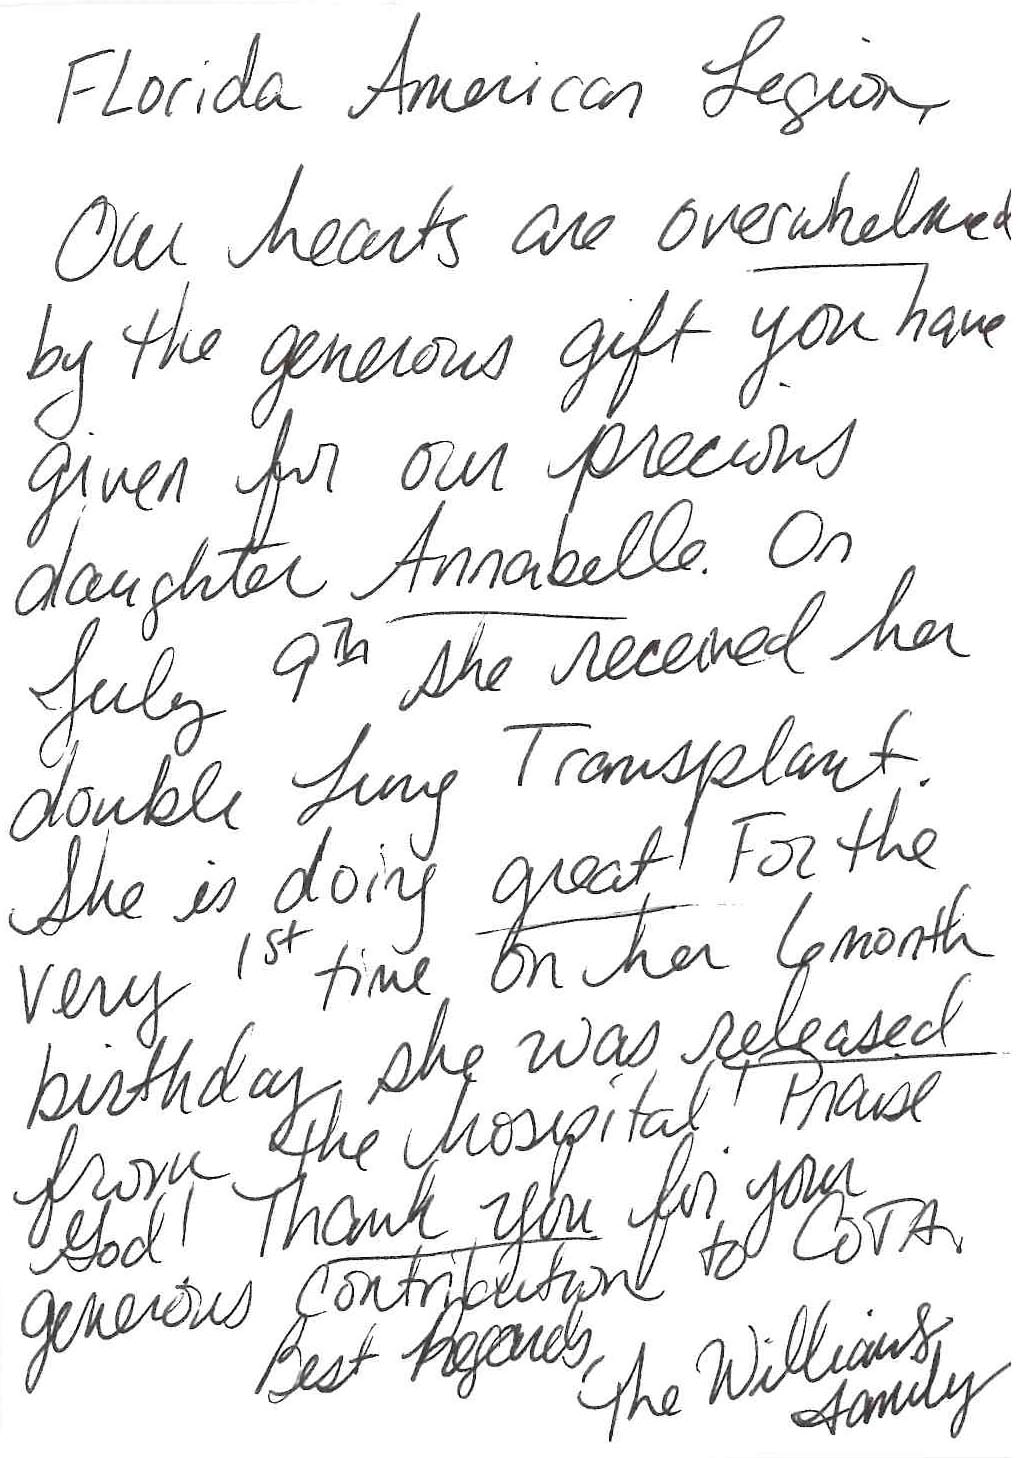 Florida American Legion,
Our hearts are overwhelmed
by the generous gift you have
given for our precious
daughter Annabelle. On
July 9th she received her
double lung Transplant.
She is doing great! For the
very 1st time on her 6 month
birthday she was released
from the hospital! Praise
God! Thank you for your
generous contribution to COTA.
Best Regards,
The Williams
family